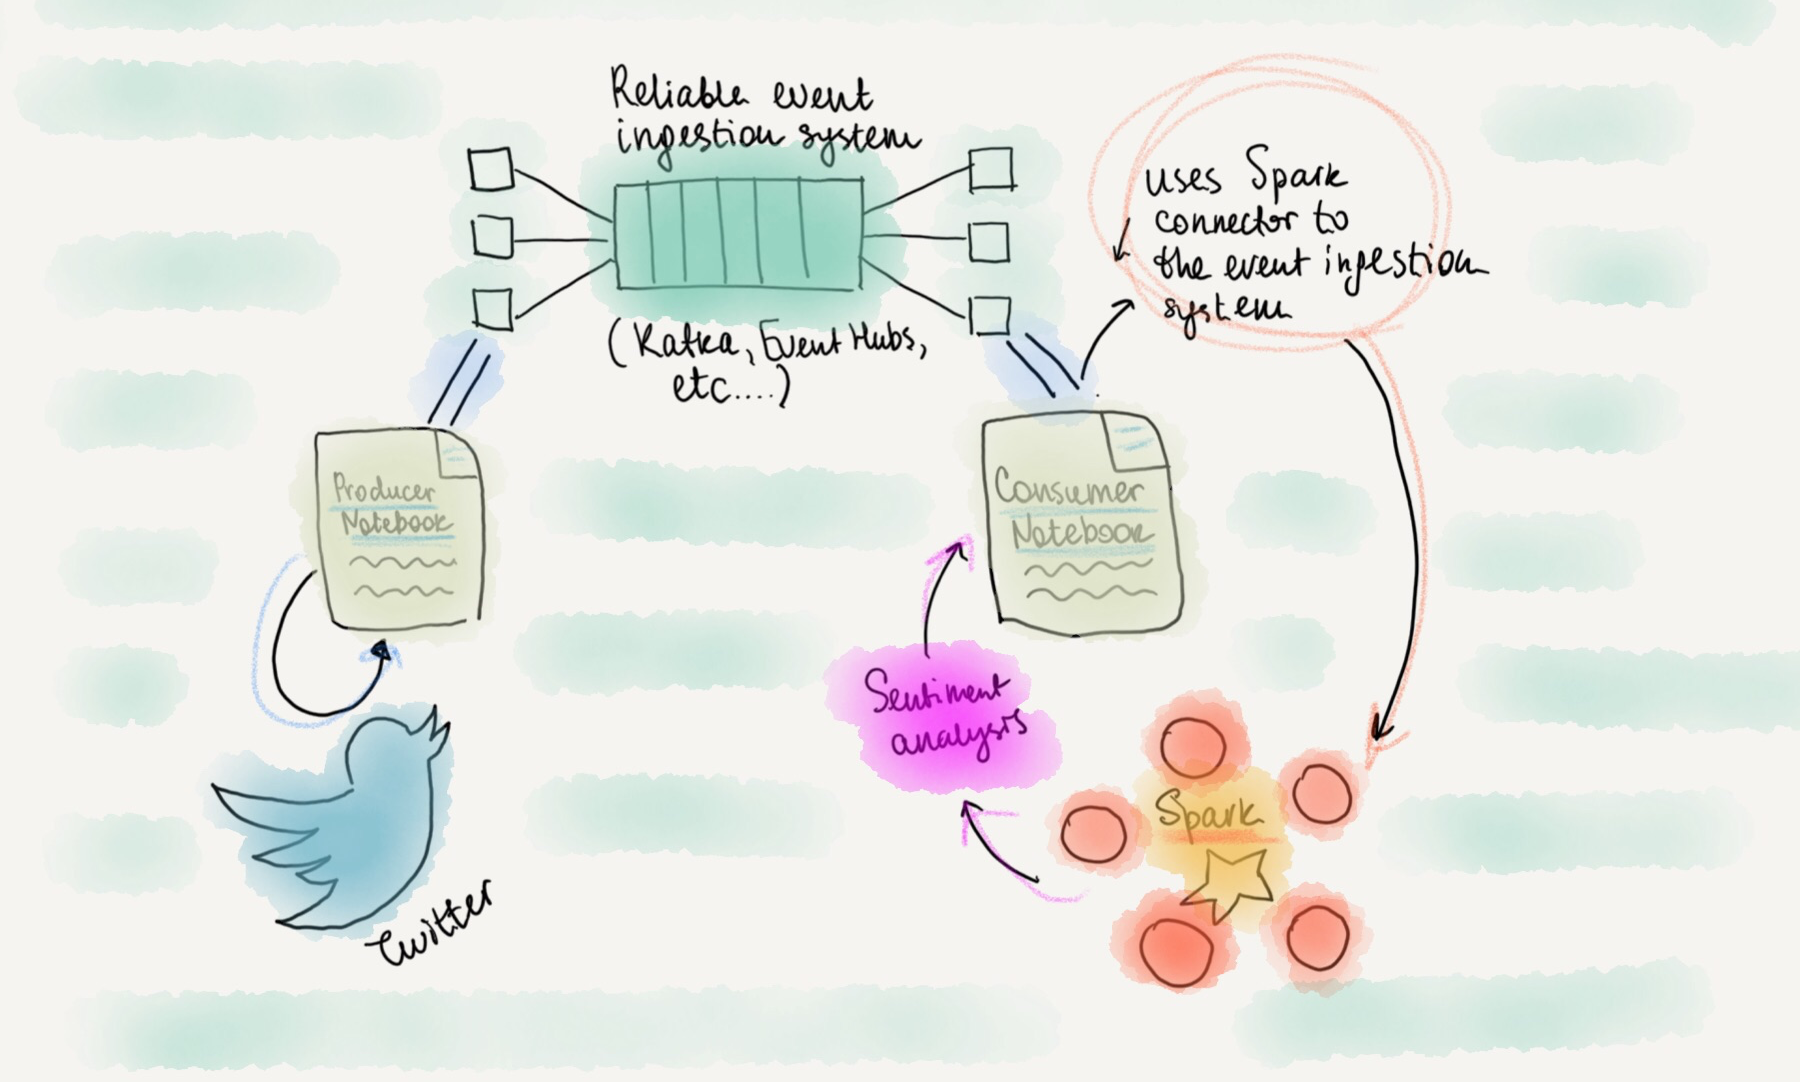 Reliable event
ingestion system
(Kafka, Event Hubs,
etc....)
uses Spark
connector to
the event ingestion
system
Producer
Notebook
Consumer
Notebook
Sentiment
analysis
Spark
Twitter